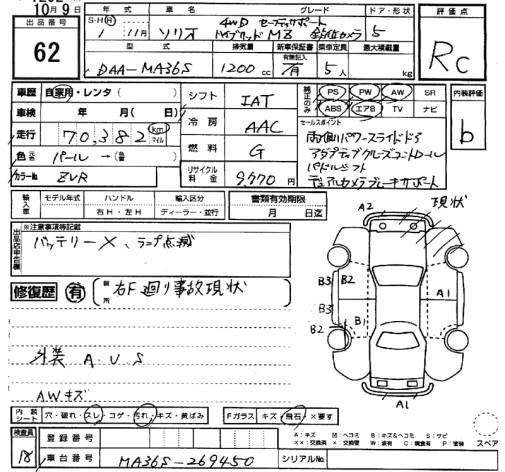 10月9日
出品番号 62
年式 車名 グレード ドア・形状 評価点
S・H・R 1年 11月 ソリオ 4WD セーフティサポート ハイブリッドMZ 全方位カメラ 5
Rc
型式 排気量 新車保証書 乗車定員 最大積載量
DAA-MA36S 1200cc 有無記入 有 5人 kg
車歴 自家用・レンタ( )
シフト IAT
純正のみ PS PW AW SR
ABS エアB TV ナビ
内装評価 b
車検 年 月( 日)
冷房 AAC
セールスポイント
両側パワースライドドア
アダプティブクルーズコントロール
パドルシフト
デュアルカメラブレーキサポート
走行 70,382 km マイル
燃料 G
色 元色 パール→(替 )
カラーNo ZVR
リサイクル料金 9,770円
輸入車 モデル年式 ハンドル 輸入区分 書類有効期限
年 右H・左H ディーラー・並行 月 日迄
※注意事項等記載
バッテリー×、ランプ点滅
修復歴 有 箇所 右F廻り事故現状
外装 A U S
AWキズ
現状
A2
B3 B2
A1
B3 B1
B2
A1
内装シート 穴・破れ・スレ・コゲ・汚れ・キズ・黄ばみ
Fガラス キズ・飛石・×要す
A:キズ U:ヘコミ B:キズ&ヘコミ S:サビ
××:交換済 ×:交換 W:波有 C:腐食有 P:塗装
スペア
検査員 18
登録番号
車台番号 MA36S-269450
シリアルNo.